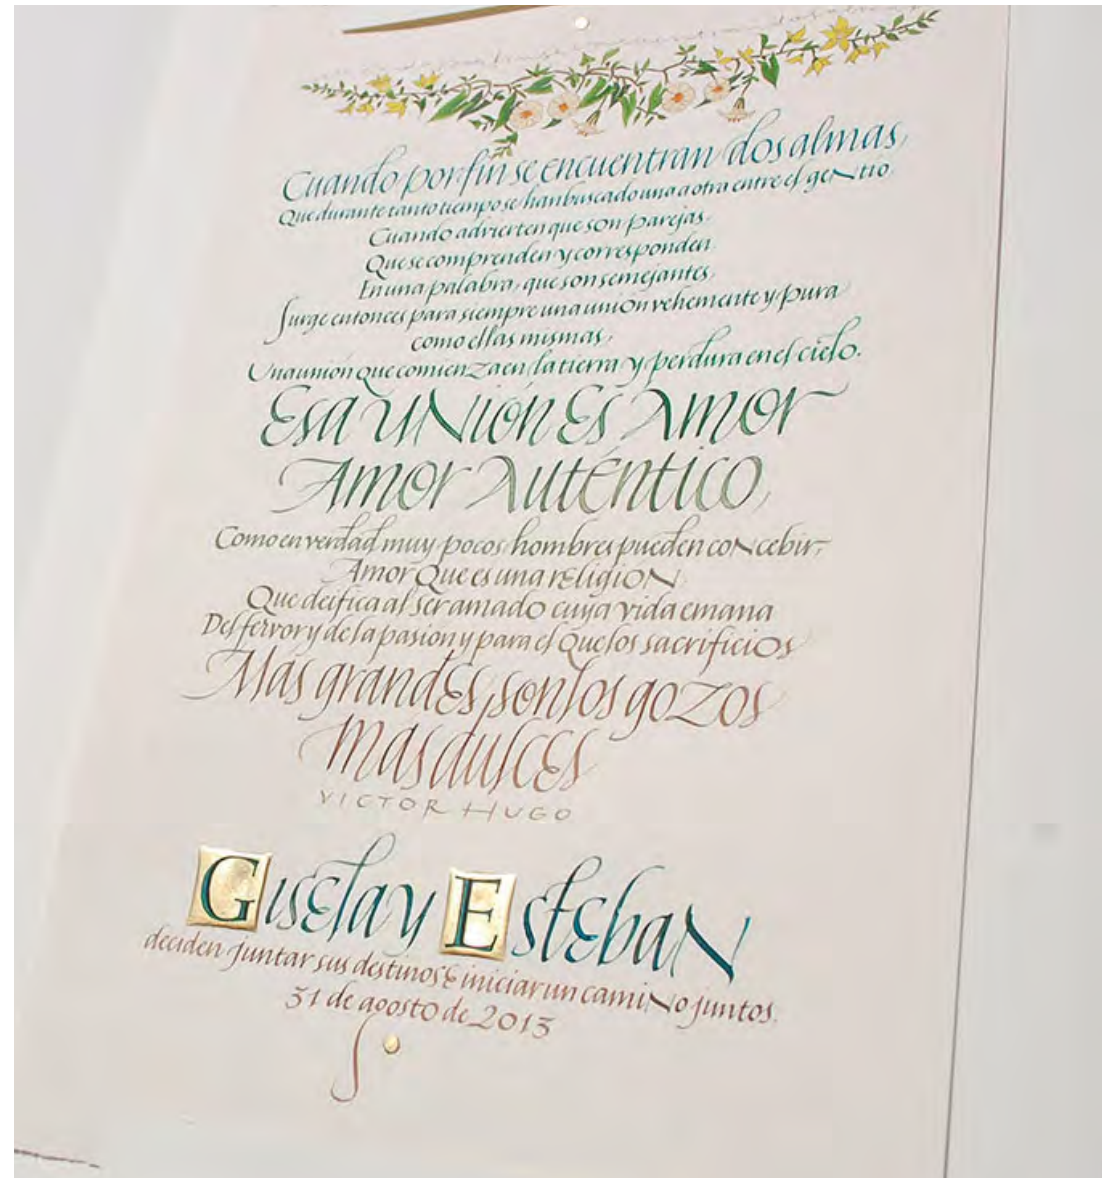 Cuando por fin se encuentran dos almas,
Que durante tanto tiempo se han buscado una a otra entre el gentío
Cuando advierten que son parejas
Que se comprenden y corresponden
En una palabra, que son semejantes,
Surge entonces para siempre una unión vehemente y pura
como ellas mismas,
Una unión que comienza en la tierra y perdura en el cielo.
Esa unión Es Amor
Amor Auténtico,
Como en verdad muy pocos hombres pueden concebir,
Amor Que es una religión,
Que deifica al ser amado cuya vida emana
Del fervor y de la pasión y para el Que los sacrificios
Mas grandes, son los gozos
mas dulces
VICTOR HUGO
Gisela y Esteban
deciden juntar sus destinos E iniciar un camino juntos.
31 de agosto de 2013